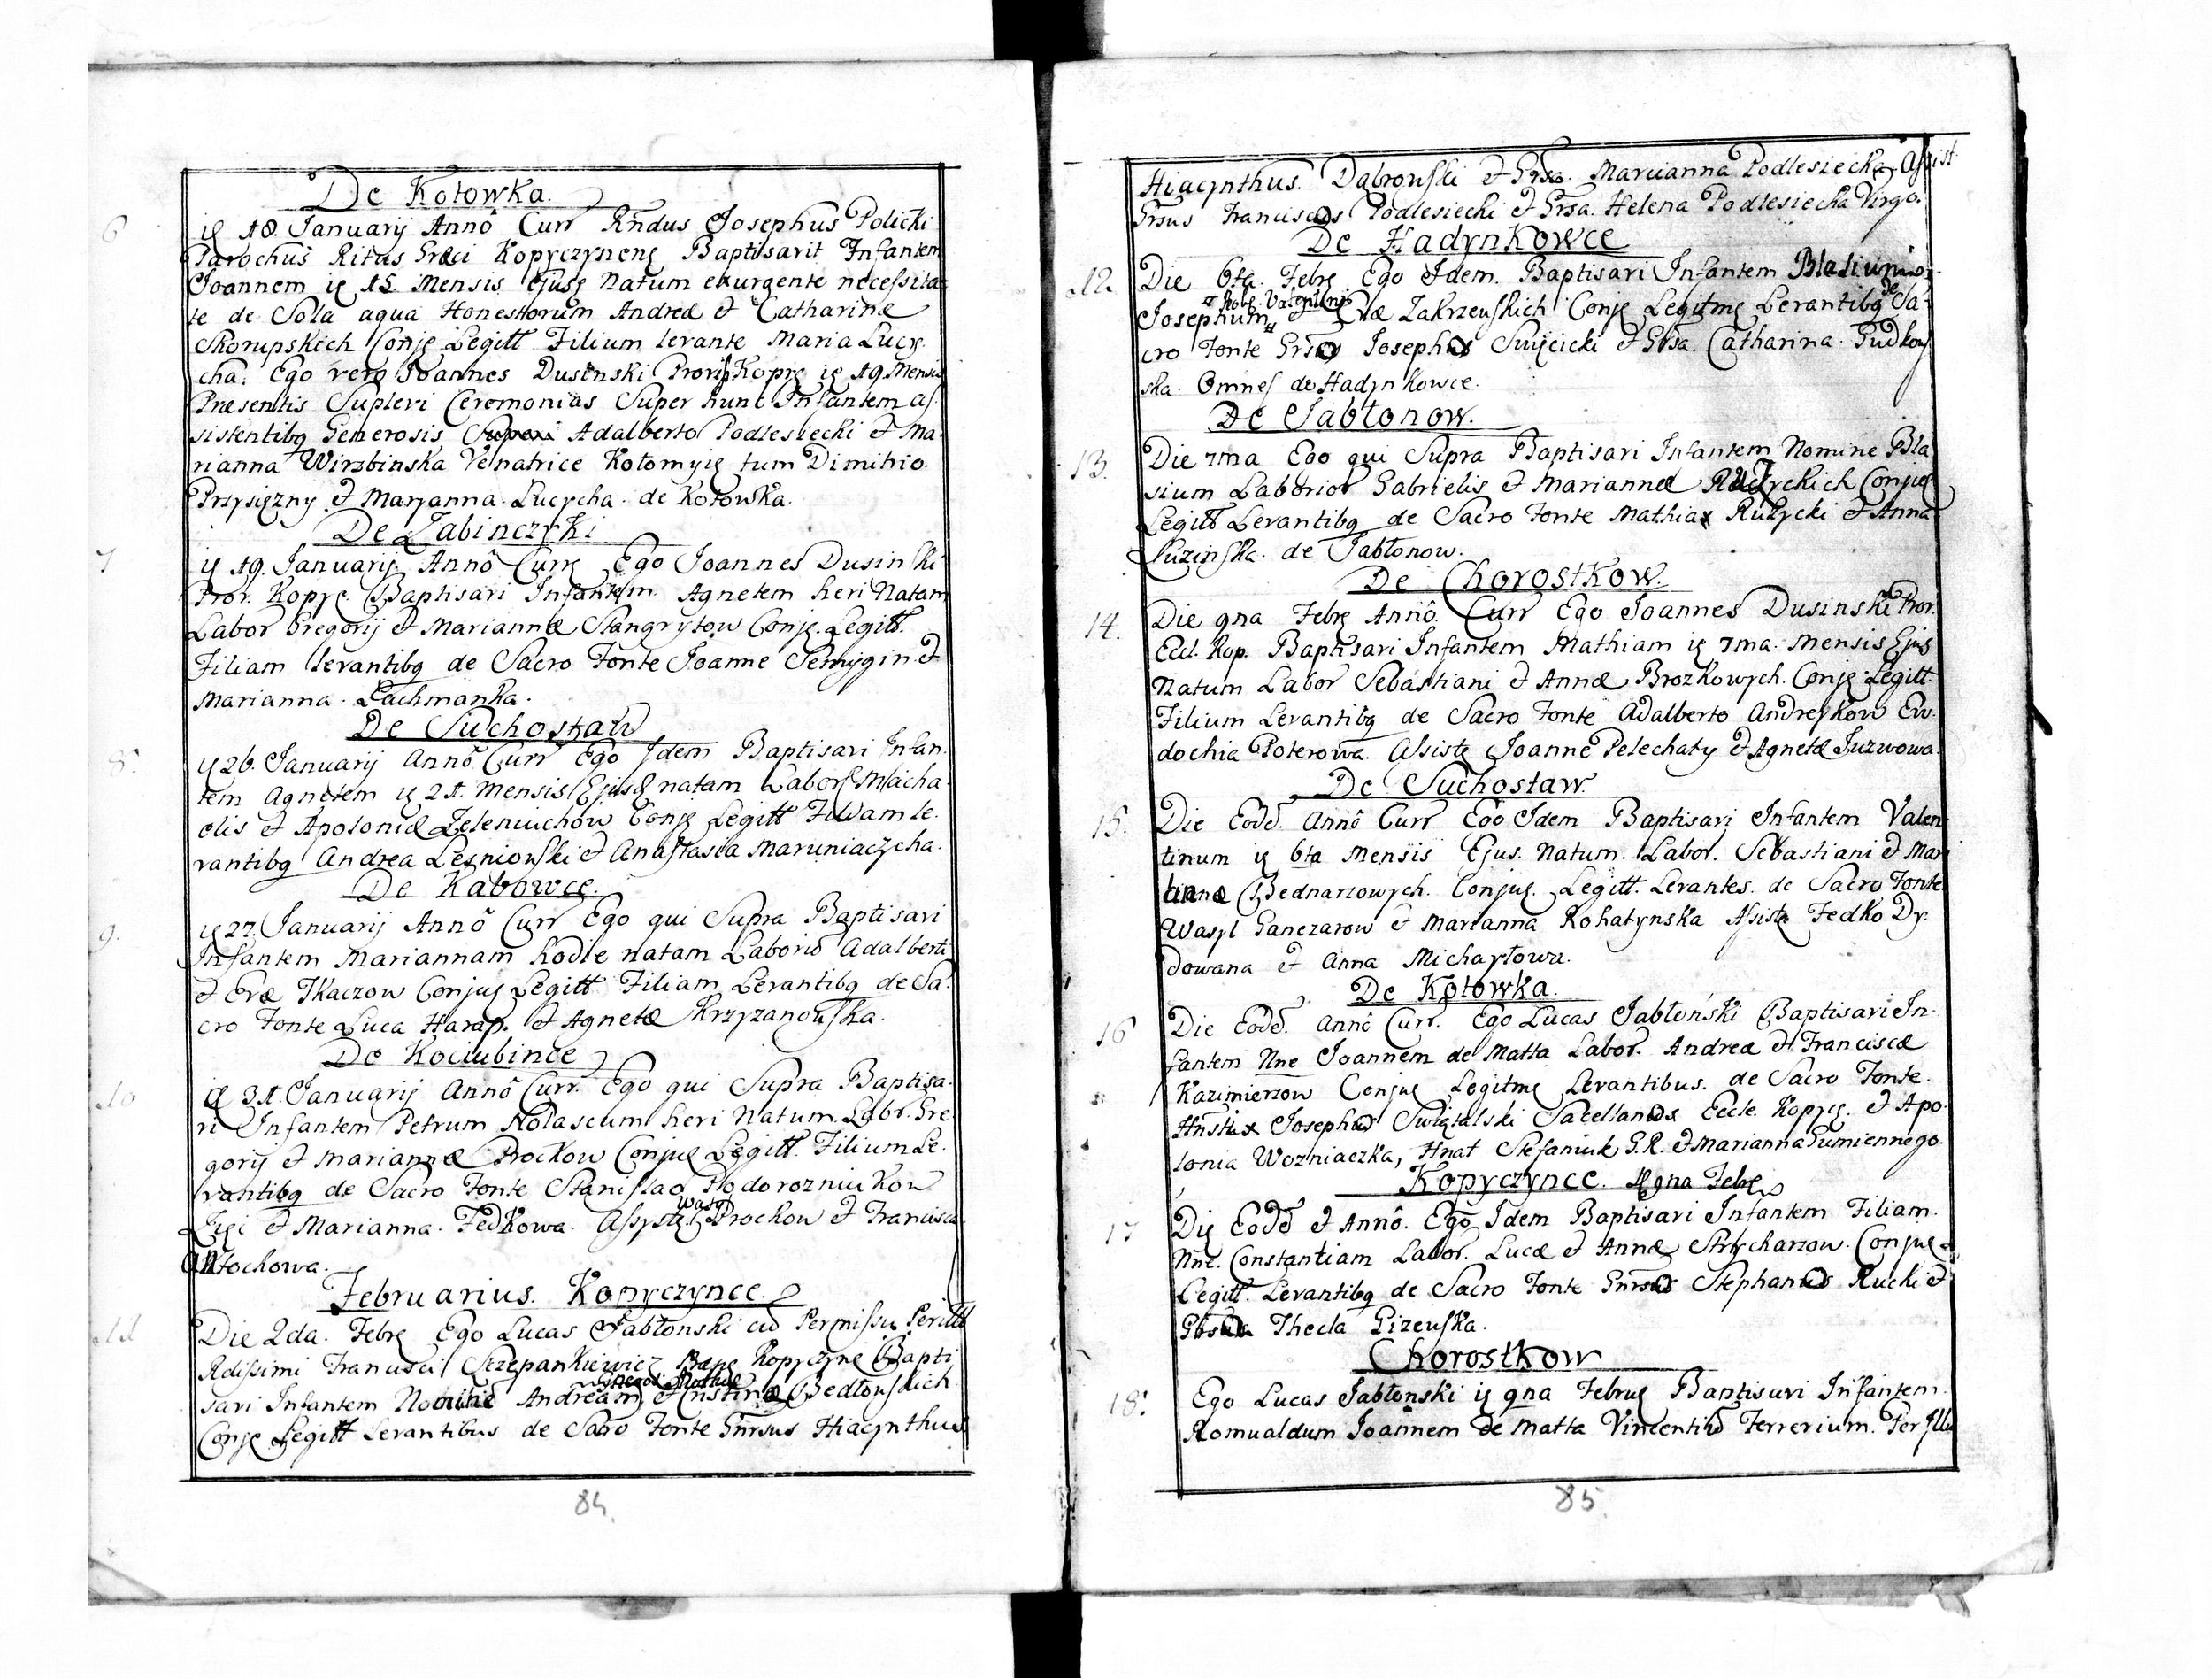 De Kotowka.
6 ię 18. Januarij Annô Curr Rndus Josephus Policki
Parochus Ritus Græci Kopyczyneng Baptisavit Infantem
Joannem ię 15 Mensis Ejusq Natum exurgente necessita
te de Sola aqua Honestorum Andreæ & Catharinæ
Skorupskich Conję Legitt Filium levante Maria Lucy
cha. Ego vero Joannes Dusinski Kopyę ię 19 Mensis
Præsentis Suplevi Ceremonias Super hunc Infantem as
sistentibq Generosis Adalberto Podlesiecki & Ma
rianna Wirzbinska Venatrice Kołomyię tum Dimitrio
Przysiężny & Maryanna Lucycha de Kotowka.
De Zabinczyki
7 ię 19. Januarij Annô Currę Ego Joannes Dusinski
Pror. Kopyę. Baptisavi Infantem Agnetem heri Natam
Labor Gregorij & Mariannæ Stangrytow Conję. Legitt.
Filiam levantibq de Sacro Fonte Joanne &
Marianna Lachmanka.
De Suchostaw
8. ię 26. Januarij Annô Curr Ego Idem Baptisavi Infan
tem Agnetem ię 21. Mensis Ejusq natam Labor Micha
elis & Apoloniæ Zeleniuchow Conję Legitt Filiam le
vantibq Andrea Leśniowski & Anastasia Maruniaczycha.
De Kabowce.
9. ię 27. Januarij Annô Curr Ego qui Supra Baptisavi
Infantem Mariannam hodie natam Laborio Adalberti
& Evæ Tkaczow Conjuę Legitt Filiam Levantibq de Sa
cro Fonte Luca Harap. & Agnetæ Krzyzanowska.
De Kociubince
10 31. Januarij Annô Curr. Ego qui Supra Baptisa
vi Infantem Petrum Nolascum heri Natum Labr. Gre
gorij & Mariannæ Prockow Conjuę Legitt. Filium Le
vantibq de Sacro Fonte Stanislao Podorozniukow
Wasyl
& Marianna Fedkowa. Assystę. Prockow & Francisca
Antochowa.
Februarius. Kopyczynce.
11 Die 2da. Febrę Ego Lucas Jabłonski cü Permissu Peritt
Rdissimi Francisci Szczepankiewicz Kopyczynę Bapti
savi Infantem Nomine Andream & Bedłowskich
Conję Legitt Levantibus de Sacro Fonte Gnrsus Hiacynthus
84.
Hiacynthus Dąbrowski & Grsa. Marianna Podlesiecka Assist
Grsus Franciscus Podlesiecki & Grsa. Helena Podlesiecka Virgo.
De Hadynkowce
12. Die 6ta. Febrę Ego Idem Baptisavi Infantem Blasium
Valentini de
Josephum & Evæ Zakrzewskich Conję Legitmę Levantibq Sa
cro Fonte Josephus Swięcicki & Grsa. Catharina Gudkow
ska. Omnes de Hadynkowce.
De Jabłonow.
13. Die 7ma Ego qui Supra Baptisavi Infantem Nomine Bla
sium Laborior Gabrielis & Mariannæ Rużyckich Conjuę
Legitt Levantibq de Sacro Fonte Mathias Rużycki & Anna
Kuzinska. de Jabłonow.
De Chorostkow.
14. Die 9na Febrę Annô Curr Ego Joannes Dusinski Pror.
Eccl. Kop. Baptisavi Infantem Mathiam ię 7ma. Mensis Ejus
Natum Labor Sebastiani & Annæ Brozkowych. Conję Legitt.
Filium Levantibq de Sacro Fonte Adalberto Andreykow Ew
dochia Poterowa. Assistę Joanne Pelechaty & Agnetæ Juzwowa.
De Suchostaw
15. Die Eodd. Annô Curr Ego Idem Baptisavi Infantem Valen
tinum ię 6ta Mensis Ejus Natum. Labor. Sebastiani & Mari
annæ Bednarzowych. Conjuę. Legitt. Levantes. de Sacro Fonte
Wasyl Ganczarow & Marianna Rohatynska Assistę Fedko Dy
dowana & Anna Michayłowa.
De Kotowka.
16 Die Eodd. Annô Curr. Ego Lucas Jabłoński Baptisavi In
fantem Nne Joannem de Matta Labor. Andreæ & Franciscæ
Kazimierzow Conjuę Legitmę Levantibus. de Sacro Fonte.
Josephus Swiętalski Sacellanus Eccle Kopyę. & Apo
lonia Wozniaczka, Hnat Stefaniuk G.R. & Marianna Gumiennego.
Kopyczynce. 9na Febrę
17 Dię Eodd & Annô. Ego Idem Baptisavi Infantem Filiam
Nne. Constantiam Labor. Lucæ & Annæ Strycharzow. Conjuę
Legitt. Levantibq de Sacro Fonte Gnrsus Stephanus Rucki &
Thecla Gizewska.
Chorostkow
18. Ego Lucas Jabłonski ię 9na Februę Baptisavi Infantem
Romualdum Joannem de Matta Vincentiũ Ferrerium. Perillu
85.